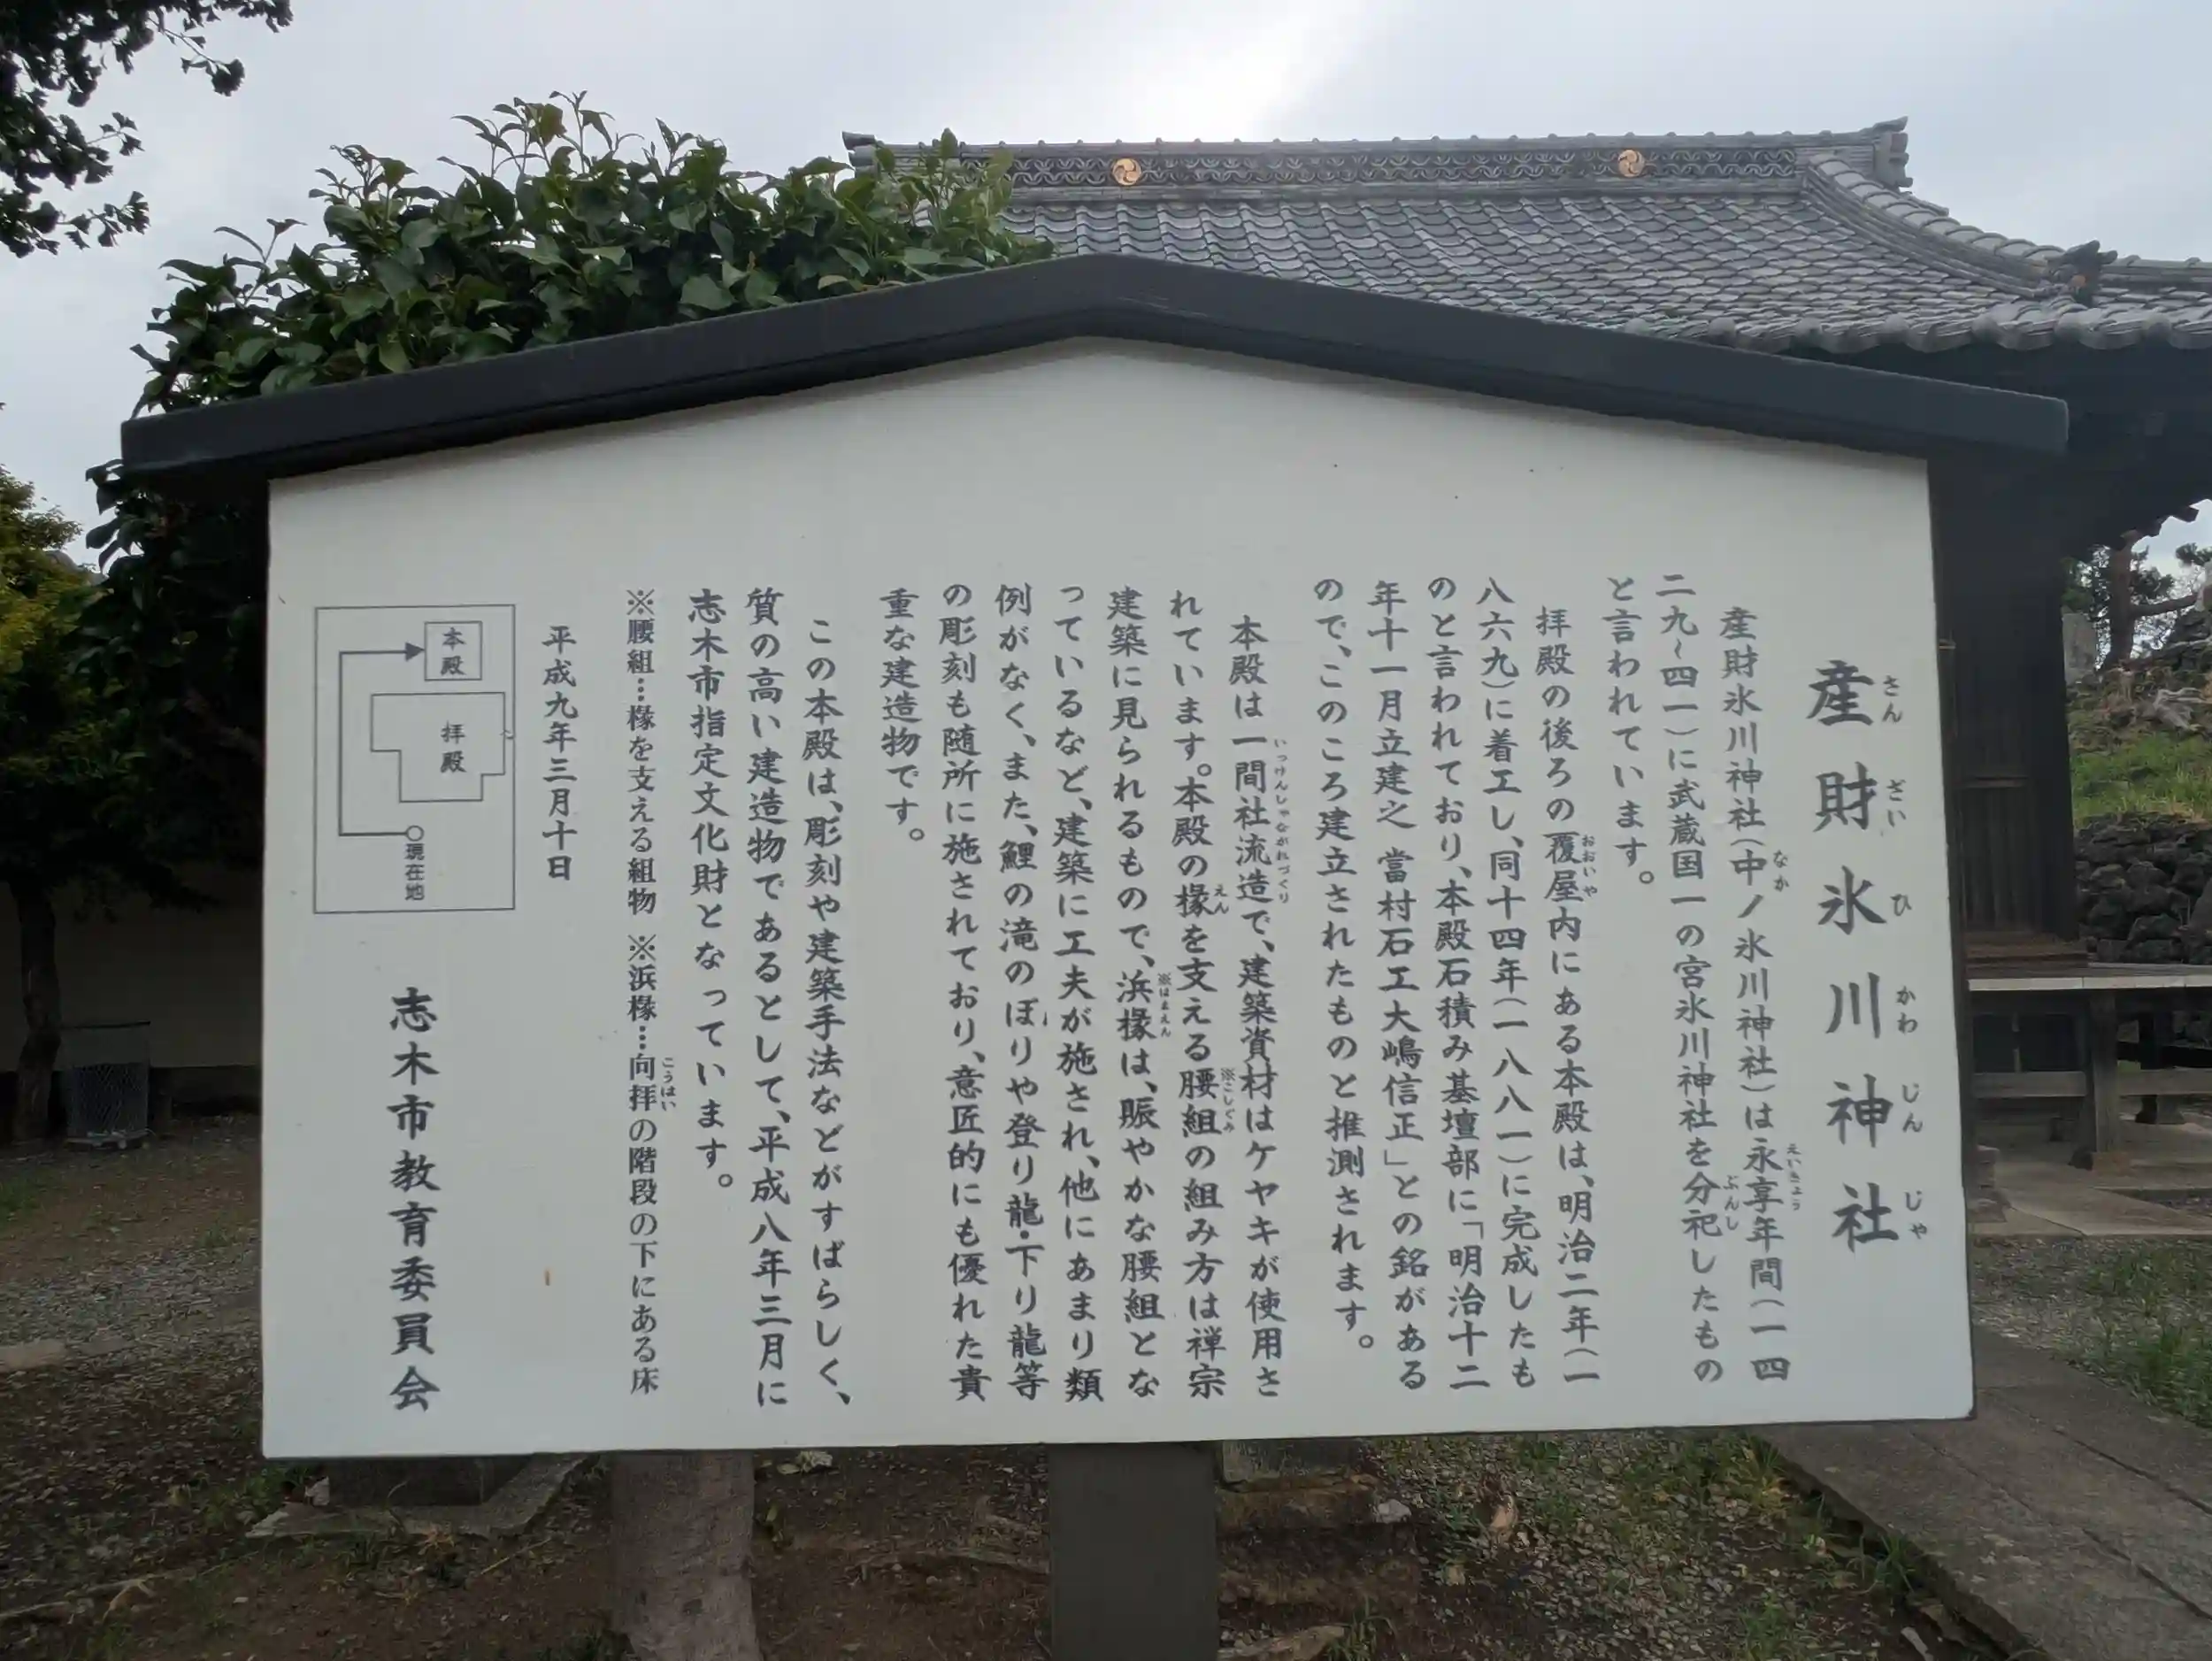 産財氷川神社
さんざいひかわじんじゃ
産財氷川神社（中ノ氷川神社）は永享年間（一四
なか
えいきょう
二九～四一）に武蔵国一の宮氷川神社を分祀したもの
ぶんし
と言われています。
拝殿の後ろの覆屋内にある本殿は、明治二年（一
おおいや
八六九）に着工し、同十四年（一八八一）に完成したも
のと言われており、本殿石積み基壇部に「明治十二
年十一月立建之 當村石工大嶋信正」との銘がある
ので、このころ建立されたものと推測されます。
本殿は一間社流造で、建築資材はケヤキが使用さ
いっけんしゃながれづくり
れています。本殿の椽を支える腰組の組み方は禅宗
えん
※こしぐみ
建築に見られるもので、浜椽は、賑やかな腰組とな
※はまえん
っているなど、建築に工夫が施され、他にあまり類
例がなく、また、鯉の滝のぼりや登り龍・下り龍等
の彫刻も随所に施されており、意匠的にも優れた貴
重な建造物です。
この本殿は、彫刻や建築手法などがすばらしく、
質の高い建造物であるとして、平成八年三月に
志木市指定文化財となっています。
※腰組…椽を支える組物 ※浜椽…向拝の階段の下にある床
こうはい
平成九年三月十日
志木市教育委員会
本殿
拝殿
現在地